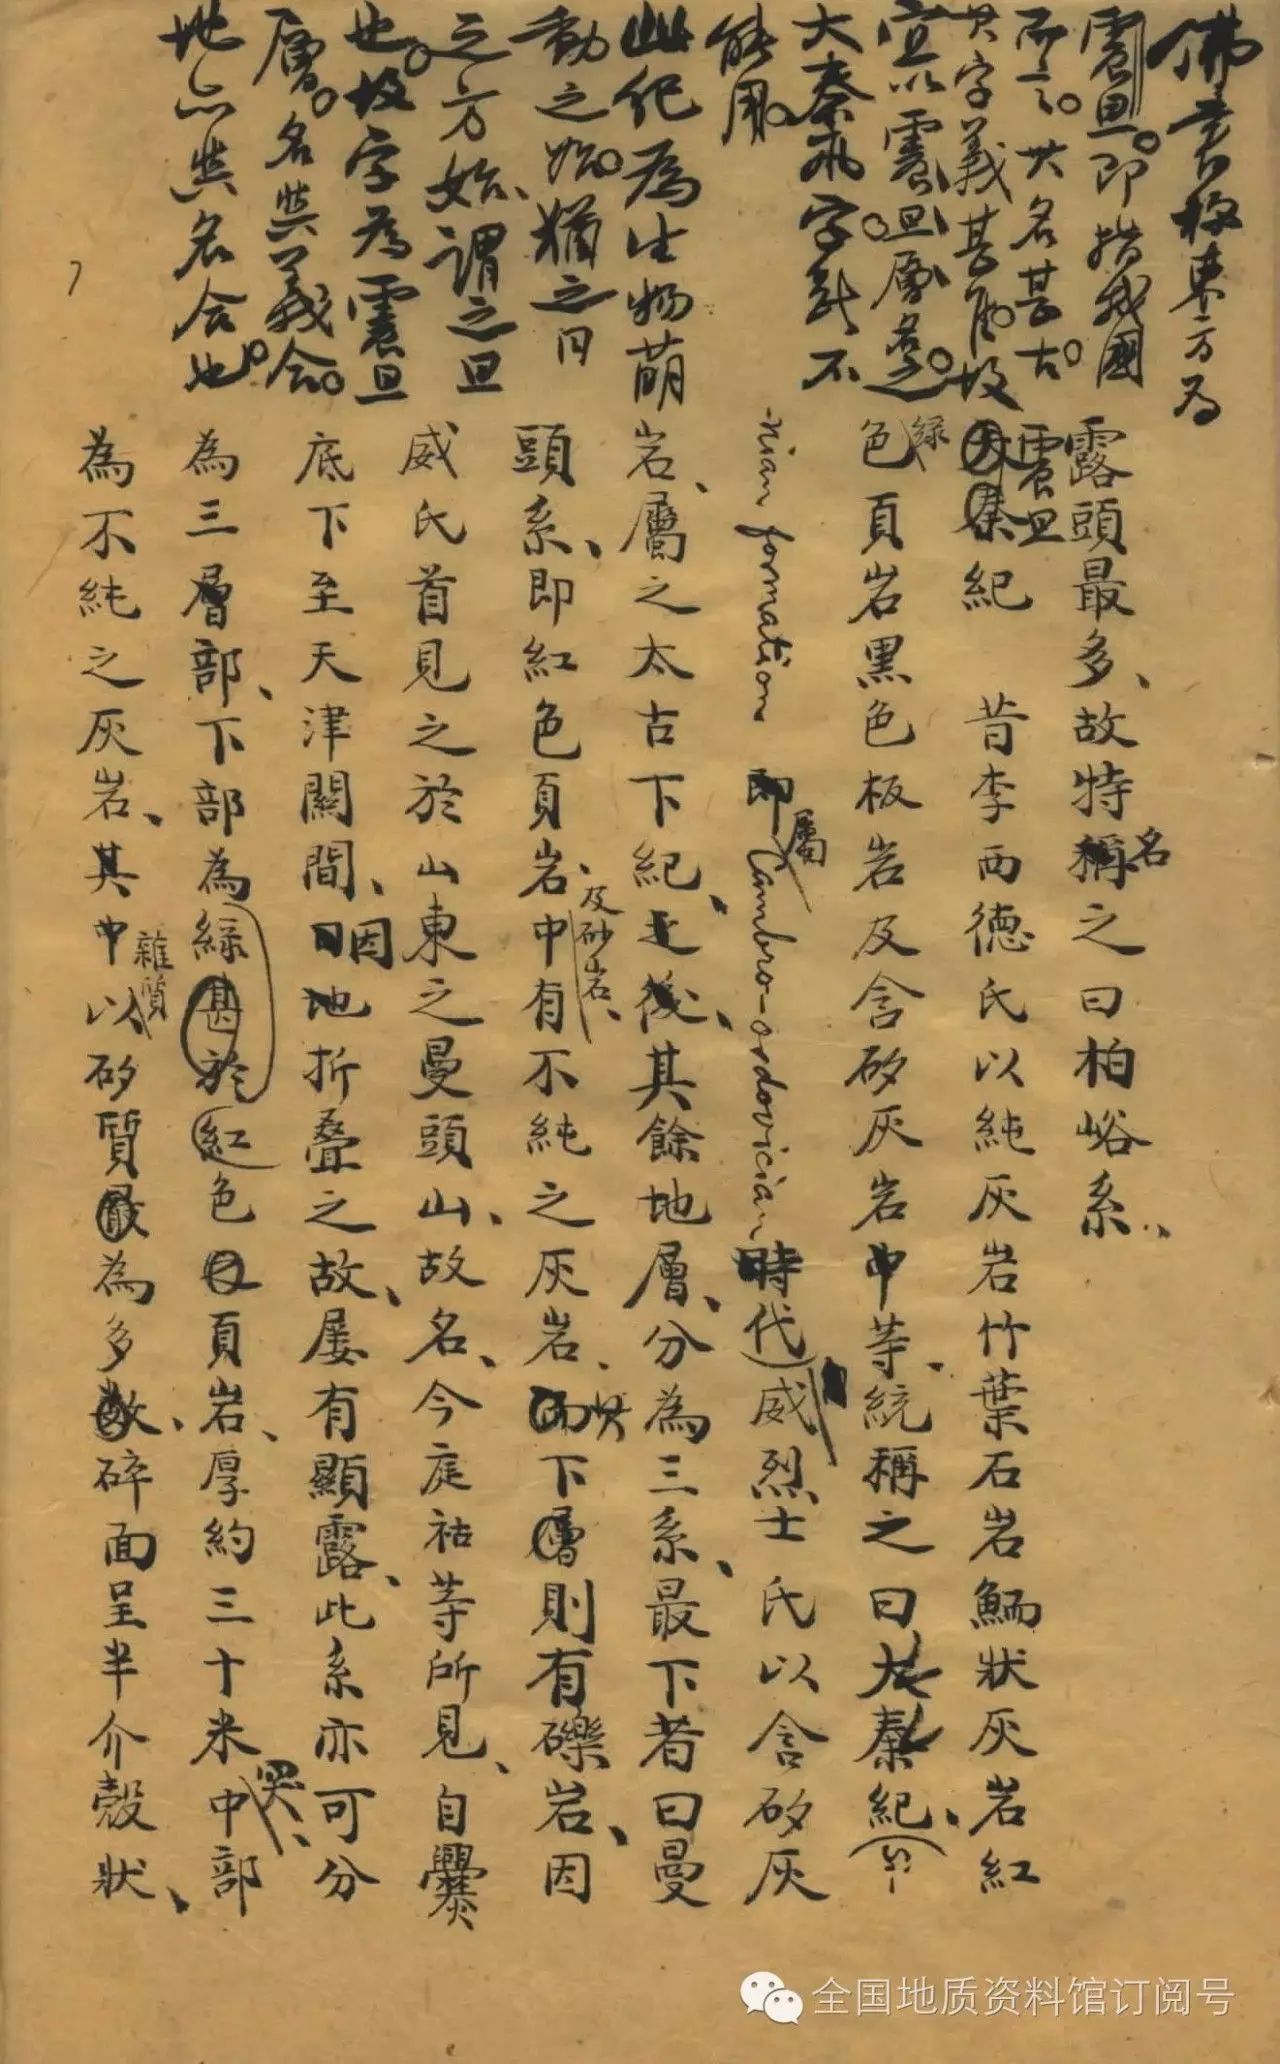 佛書稱東方為
震旦。即指我國
而言。其名甚古。
其字義甚固故
宜以震旦層名之。
大秦兩字则不
能用。
此纪為生物萌
動之始。猶之日
之方始、謂之旦
也。故字為震旦
層。名與義合。
地亦與名合也。
露頭最多、故特名之曰柏峪系、
震旦紀 昔李西德氏以純灰岩竹葉石岩鰤狀灰岩紅
色綠頁岩黑色板岩及含矽灰岩中等、統稱之曰大秦紀、(即
nian formation 即屬Cambro-ordovician時代)威烈士氏以含矽灰
岩、屬之太古下紀、之後、其餘地層、分為三系、最下者曰曼
頭系、即紅色頁岩、及砂岩、中有不純之灰岩、其下層則有礫岩、因
威氏首見之於山東之曼頭山、故名、今庭祜等所見、自爨
底下至天津關間、因地折疊之故、屡有顯露、此系亦可分
為三層部、下部為綠甚於紅色頁岩、厚約三十米、中部
為不純之灰岩、其中雜質以矽質最為多數、碎面呈半介殼狀、
全国地质资料馆订阅号